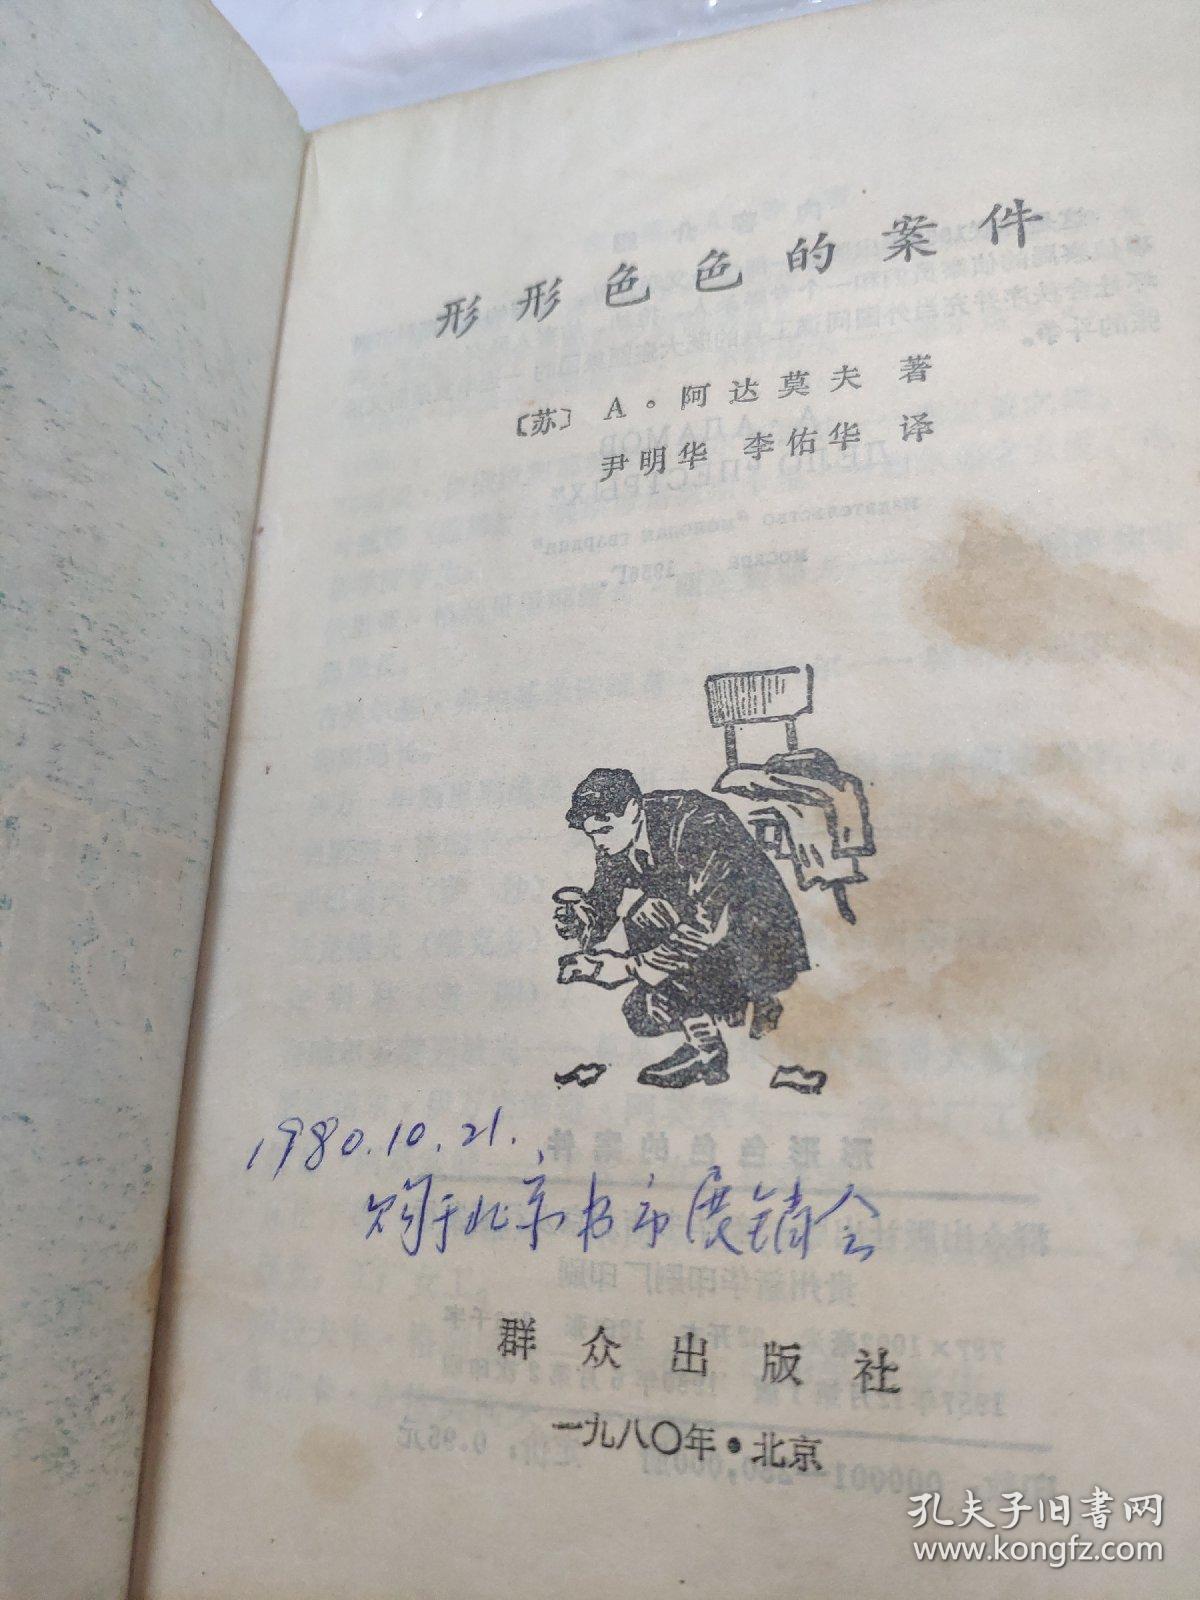 形形色色的案件
〔苏〕A·阿达莫夫 著
尹明华 李佑华 译
1980.10.21.
购于北京书市展销会
群众出版社
一九八〇年·北京
孔夫子旧书网
www.kongfz.com